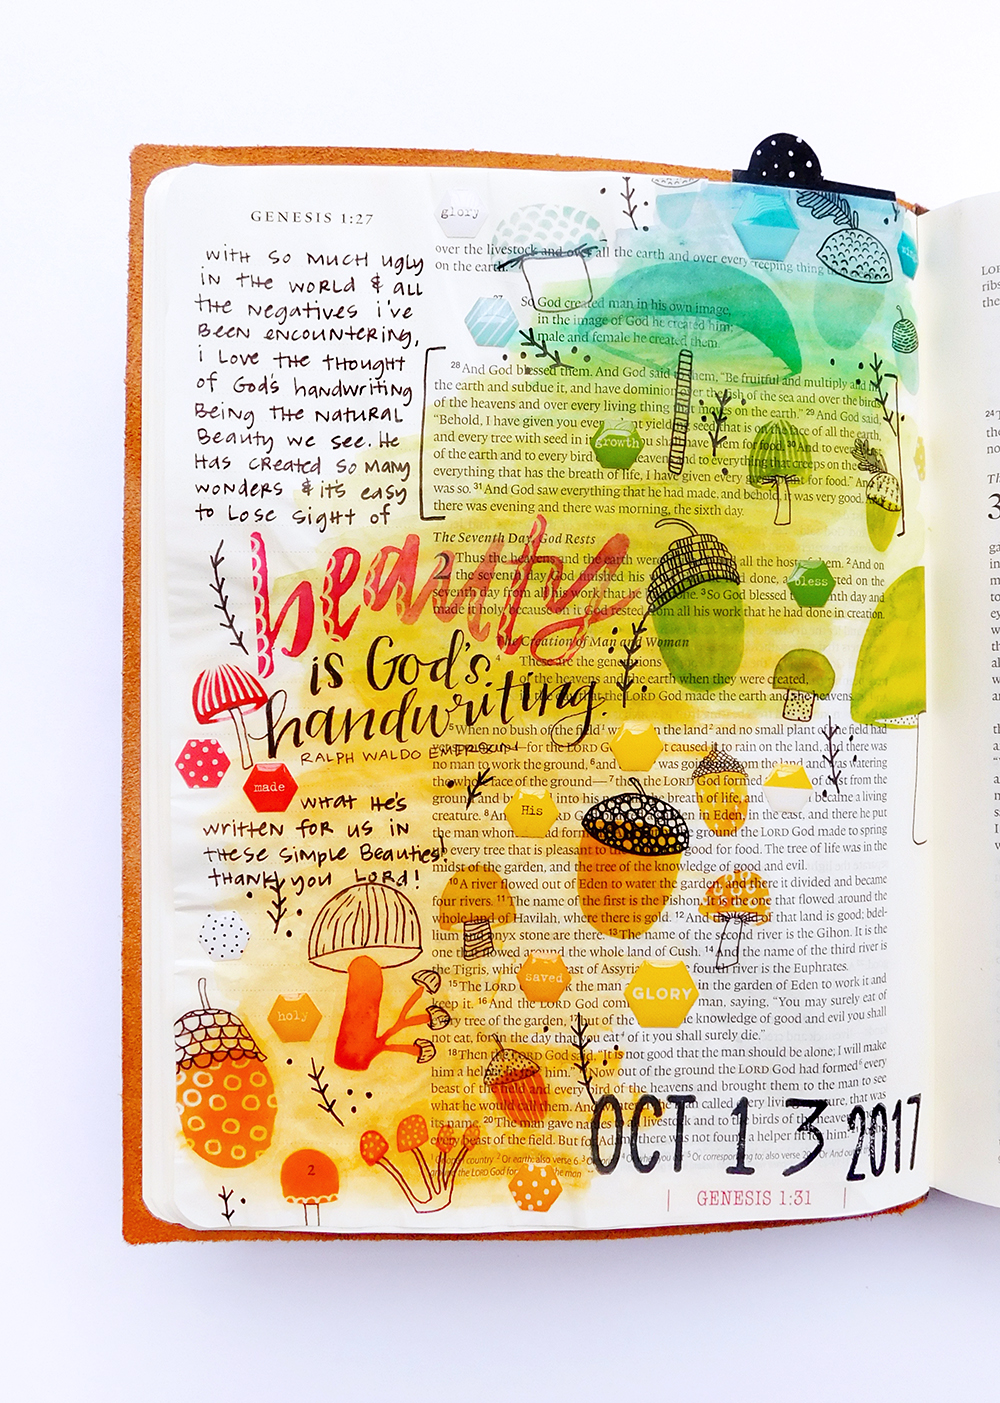 GENESIS 1:27
with so much ugly
in the world & all
the negatives i've
been encountering,
i love the thought
of God's handwriting
being the natural
beauty we see. He
has created so many
wonders & it's easy
to lose sight of
beauty
is God's
handwriting.
RALPH WALDO EMERSON
what He's
written for us in
these simple beauties.
thank you Lord!
glory
growth
bless
made
His
saved
GLORY
holy
2
over the livestock and over all the earth and over every creeping thing
on the earth."
27 So God created man in his own image,
in the image of God he created him;
male and female he created them.
28 And God blessed them. And God said to them, "Be fruitful and multiply and
the earth and subdue it, and have dominion over the fish of the sea and over the birds
of the heavens and over every living thing that moves on the earth." 29 And God said,
"Behold, I have given you every plant yielding seed that is on the face of all the earth,
and every tree with seed in its you shall have them for food. 30 And to every
of the earth and to every bird of the heavens and to everything that creeps on the
everything that has the breath of life, I have given every green plant for food." And
was so. 31 And God saw everything that he had made, and behold, it was very good.
there was evening and there was morning, the sixth day.
The Seventh Day, God Rests
2 Thus the heavens and the earth were all the host of them. 2 And on
the seventh day God finished his done, rested on the
seventh day from all his work that he 3 So God blessed seventh day and
made it holy, because on it God rested from all his work that he had done in creation.
The Creation of Man and Woman
4 These are the generations
of the heavens and the earth when they were created,
in the day that the LORD God made the earth and the heavens.
5 When no bush of the field was in the land and no small plant of the field had
for the LORD God caused it to rain on the land, and there was
no man to work the ground, 6 and was going from the land and was watering
the whole face of the ground— 7 then the LORD God formed of dust from the
ground and into his breath of life, and became a living
creature. 8 And in Eden, in the east, and there he put
the man whom formed. ground the LORD God made to spring
up every tree that is pleasant to good for food. The tree of life was in the
midst of the garden, and the tree of the knowledge of good and evil.
10 A river flowed out of Eden to water the garden, and there it divided and became
four rivers. 11 The name of the first is the Pishon. It is the one that flowed around the
whole land of Havilah, where there is gold. 12 And the gold of that land is good; bdel-
lium and onyx stone are there. 13 The name of the second river is the Gihon. It is the
one that flowed around the whole land of Cush. 14 And the name of the third river is
the Tigris, which east of Assyria. fourth river is the Euphrates.
15 The LORD the man in the garden of Eden to work it and
keep it. 16 And the LORD God com man, saying, "You may surely eat of
every tree of the garden, 17 but of the knowledge of good and evil you shall
not eat, for in the day that you eat of it you shall surely die."
18 Then the LORD God said, "It is not good that the man should be alone; I will make
him a helper fit for him." Now out of the ground the LORD God had formed every
beast of the field and every bird of the heavens and brought them to the man to see
what he would call them. And whatever the man called every living creature, that was
its name. 20 The man gave names to all livestock and to the birds of the heavens and
every beast of the field. But for Adam there was not found a helper fit for him.
OCT 13 2017
GENESIS 1:31